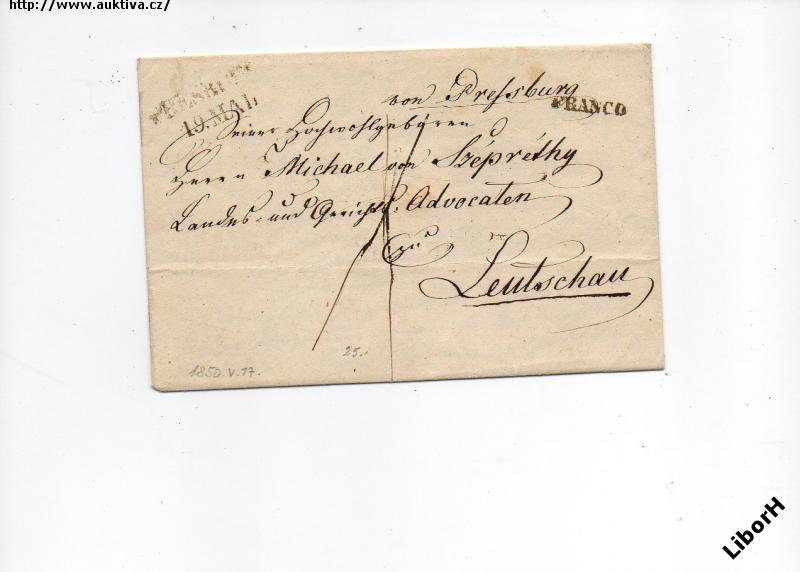 http://www.auktiva.cz/
19. MAI.
von Preſsburg
FRANCO
Seiner Hochwohlgeboren
Herrn Michael von Szépréthy
Landes- und Gerichts-Advocaten
zu
Leutschau
25.-
1850. V. 17.
LiborH